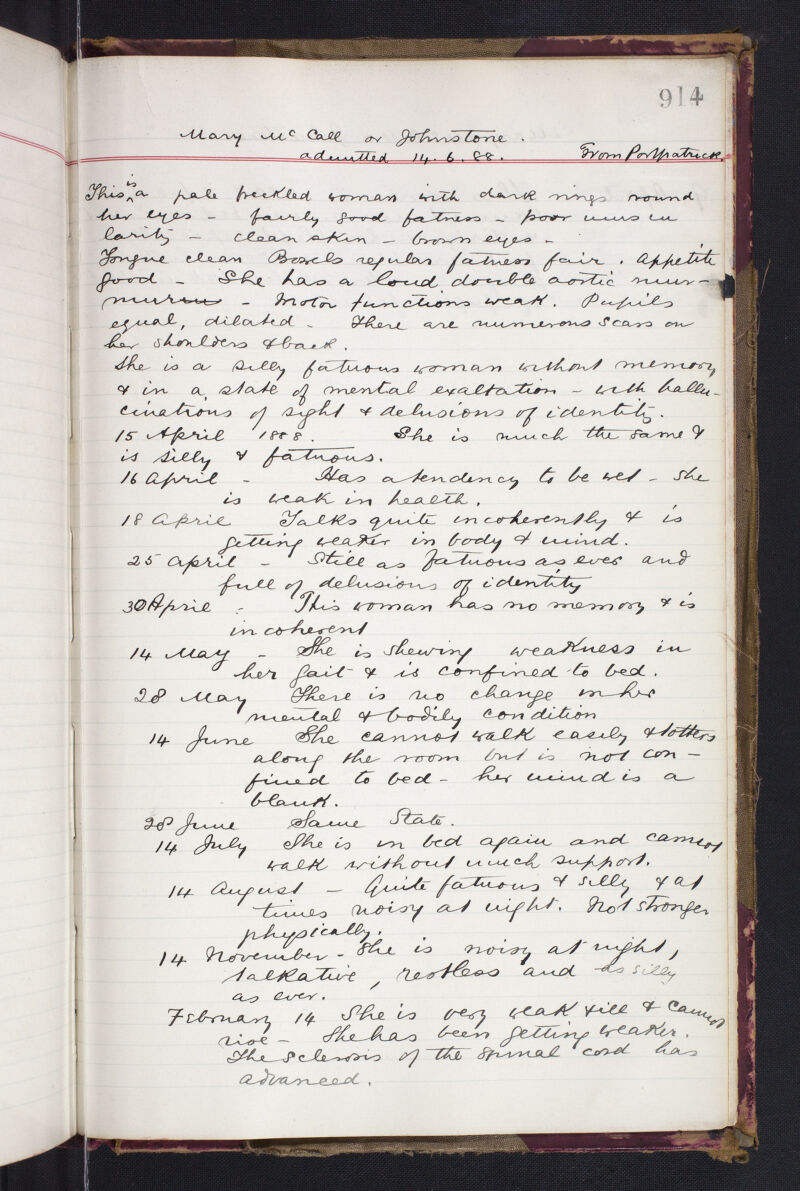 914
Mary Mc Call or Johnstone.
admitted 14.6.88. From Portpatrick.
This is a pale freckled woman with dark rings round
her eyes - fairly good fatness - poor muscu
larity - clean skin - brown eyes -
Tongue clean Bowels regular fatness fair. Appetite
good - She has a loud double aortic mur-
mur - Motor functions weak. Pupils
equal, dilated - There are numerous scars on
her shoulders & back.
She is a silly fatuous woman without memory
& in a state of mental exaltation - with hallu-
cinations of sight & delusions of identity.
15 April 1888. She is much the same &
is silly & fatuous.
16 April - Has a tendency to be wet - she
is weak in health.
18 April Talks quite incoherently & is
getting weaker in body & mind.
25 April - Still as fatuous as ever and
full of delusions of identity
30 April - This woman has no memory & is
incoherent
14 May - She is shewing weakness in
her gait & is confined to bed.
28 May There is no change in her
mental & bodily condition
14 June She cannot walk easily & totters
along the room but is not con-
fined to bed - her mind is a
blank.
28 June Same State.
14 July She is in bed again and cannot
walk without much support.
14 August - Quite fatuous & silly & at
times noisy at night. Not stronger
physically.
14 November - She is noisy at night,
talkative, restless and as silly
as ever.
February 14 She is very weak & ill & cannot
rise - She has been getting weaker.
The sclerosis of the spinal cord has
advanced.